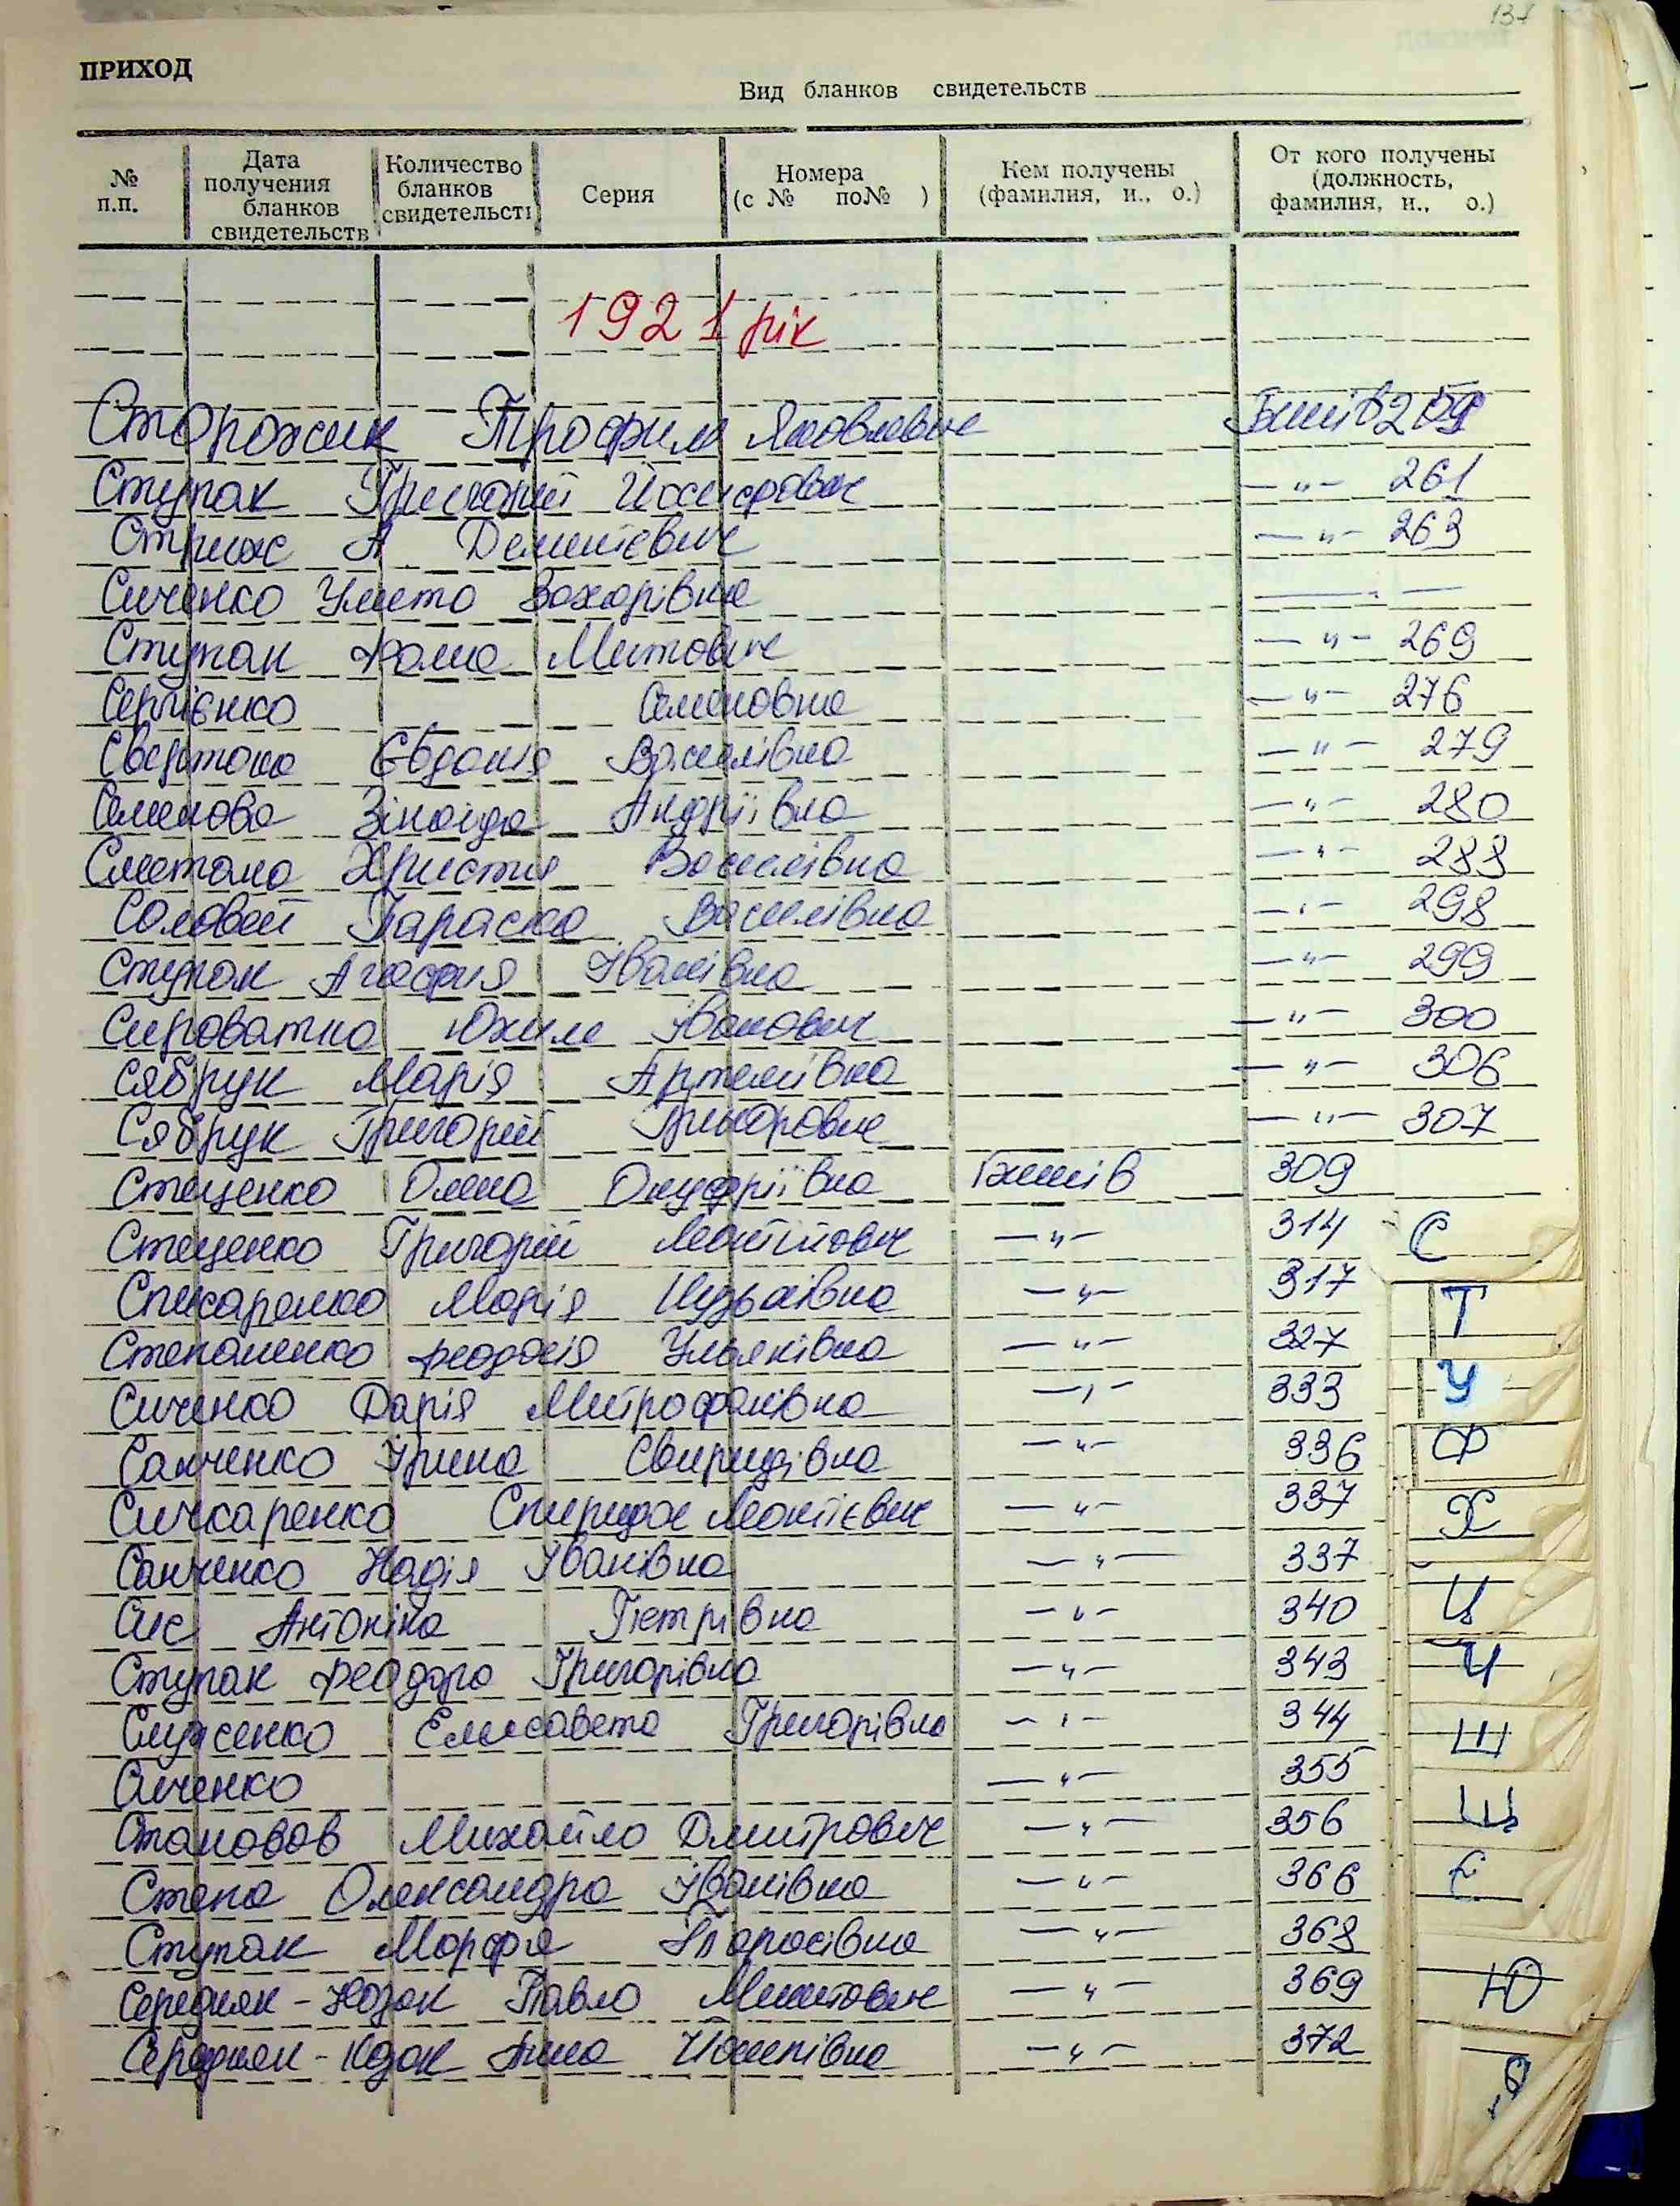 137
ПРИХОД
Вид бланков свидетельств
№ п.п.
Дата получения бланков свидетельств
Количество бланков свидетельств
Серия
Номера (с № по№ )
Кем получены (фамилия, и., о.)
От кого получены (должность, фамилия, и., о.)
1921 рік
Сторожик Трофим Яковлевич 259
Ступак Григорий 261
Стриж А Дементієвич -"- 263
Сиченко Захарівна —
Ступак Фома Митович -"- 269
Сергієнко Семеновна -"- 276
Євдокія Василівна -"- 279
Семенова Зінаїда Андріївна -"- 280
Сметана Христия Василівна -"- 288
Соловей Параска Василівна -"- 298
Ступак Агафия Іванівна -"- 299
Сироватка Юхим Іванович -"- 300
Сябрук Марія Артемівна -"- 306
Сябрук Григорій Григорович -"- 307
Стеценко Олена Онуфріївна 309
Стеценко Григорій -"- 314 С
Списаренко Марія Кузьмівна -"- 317
Т
Степаненко Феодосія Ульянівна -"- 327
Сиченко Дарія Митрофанівна -"- 333 У
Санченко Ірина Свиридівна -"- 336 Ф
Сичкаренко Спиридон Леонтієвич -"- 337 Х
Санченко Надія Іванівна -"- 337
Сис Антоніна Петрівна -"- 340 Ц
Ступак Феодора Григорівна -"- 343 Ч
Слусенко Елисавета Григорівна -"- 344 Ш
Сиченко -"- 355
Становов Михайло Дмитрович -"- 356 Щ
Степа Олександра Іванівна -"- 366 Є
Ступак Марфа Тарасівна -"- 368
Середняк-Козак Павло Микитович -"- 369 Ю
Середняк-Козак Анна Йосипівна -"- 372
Я